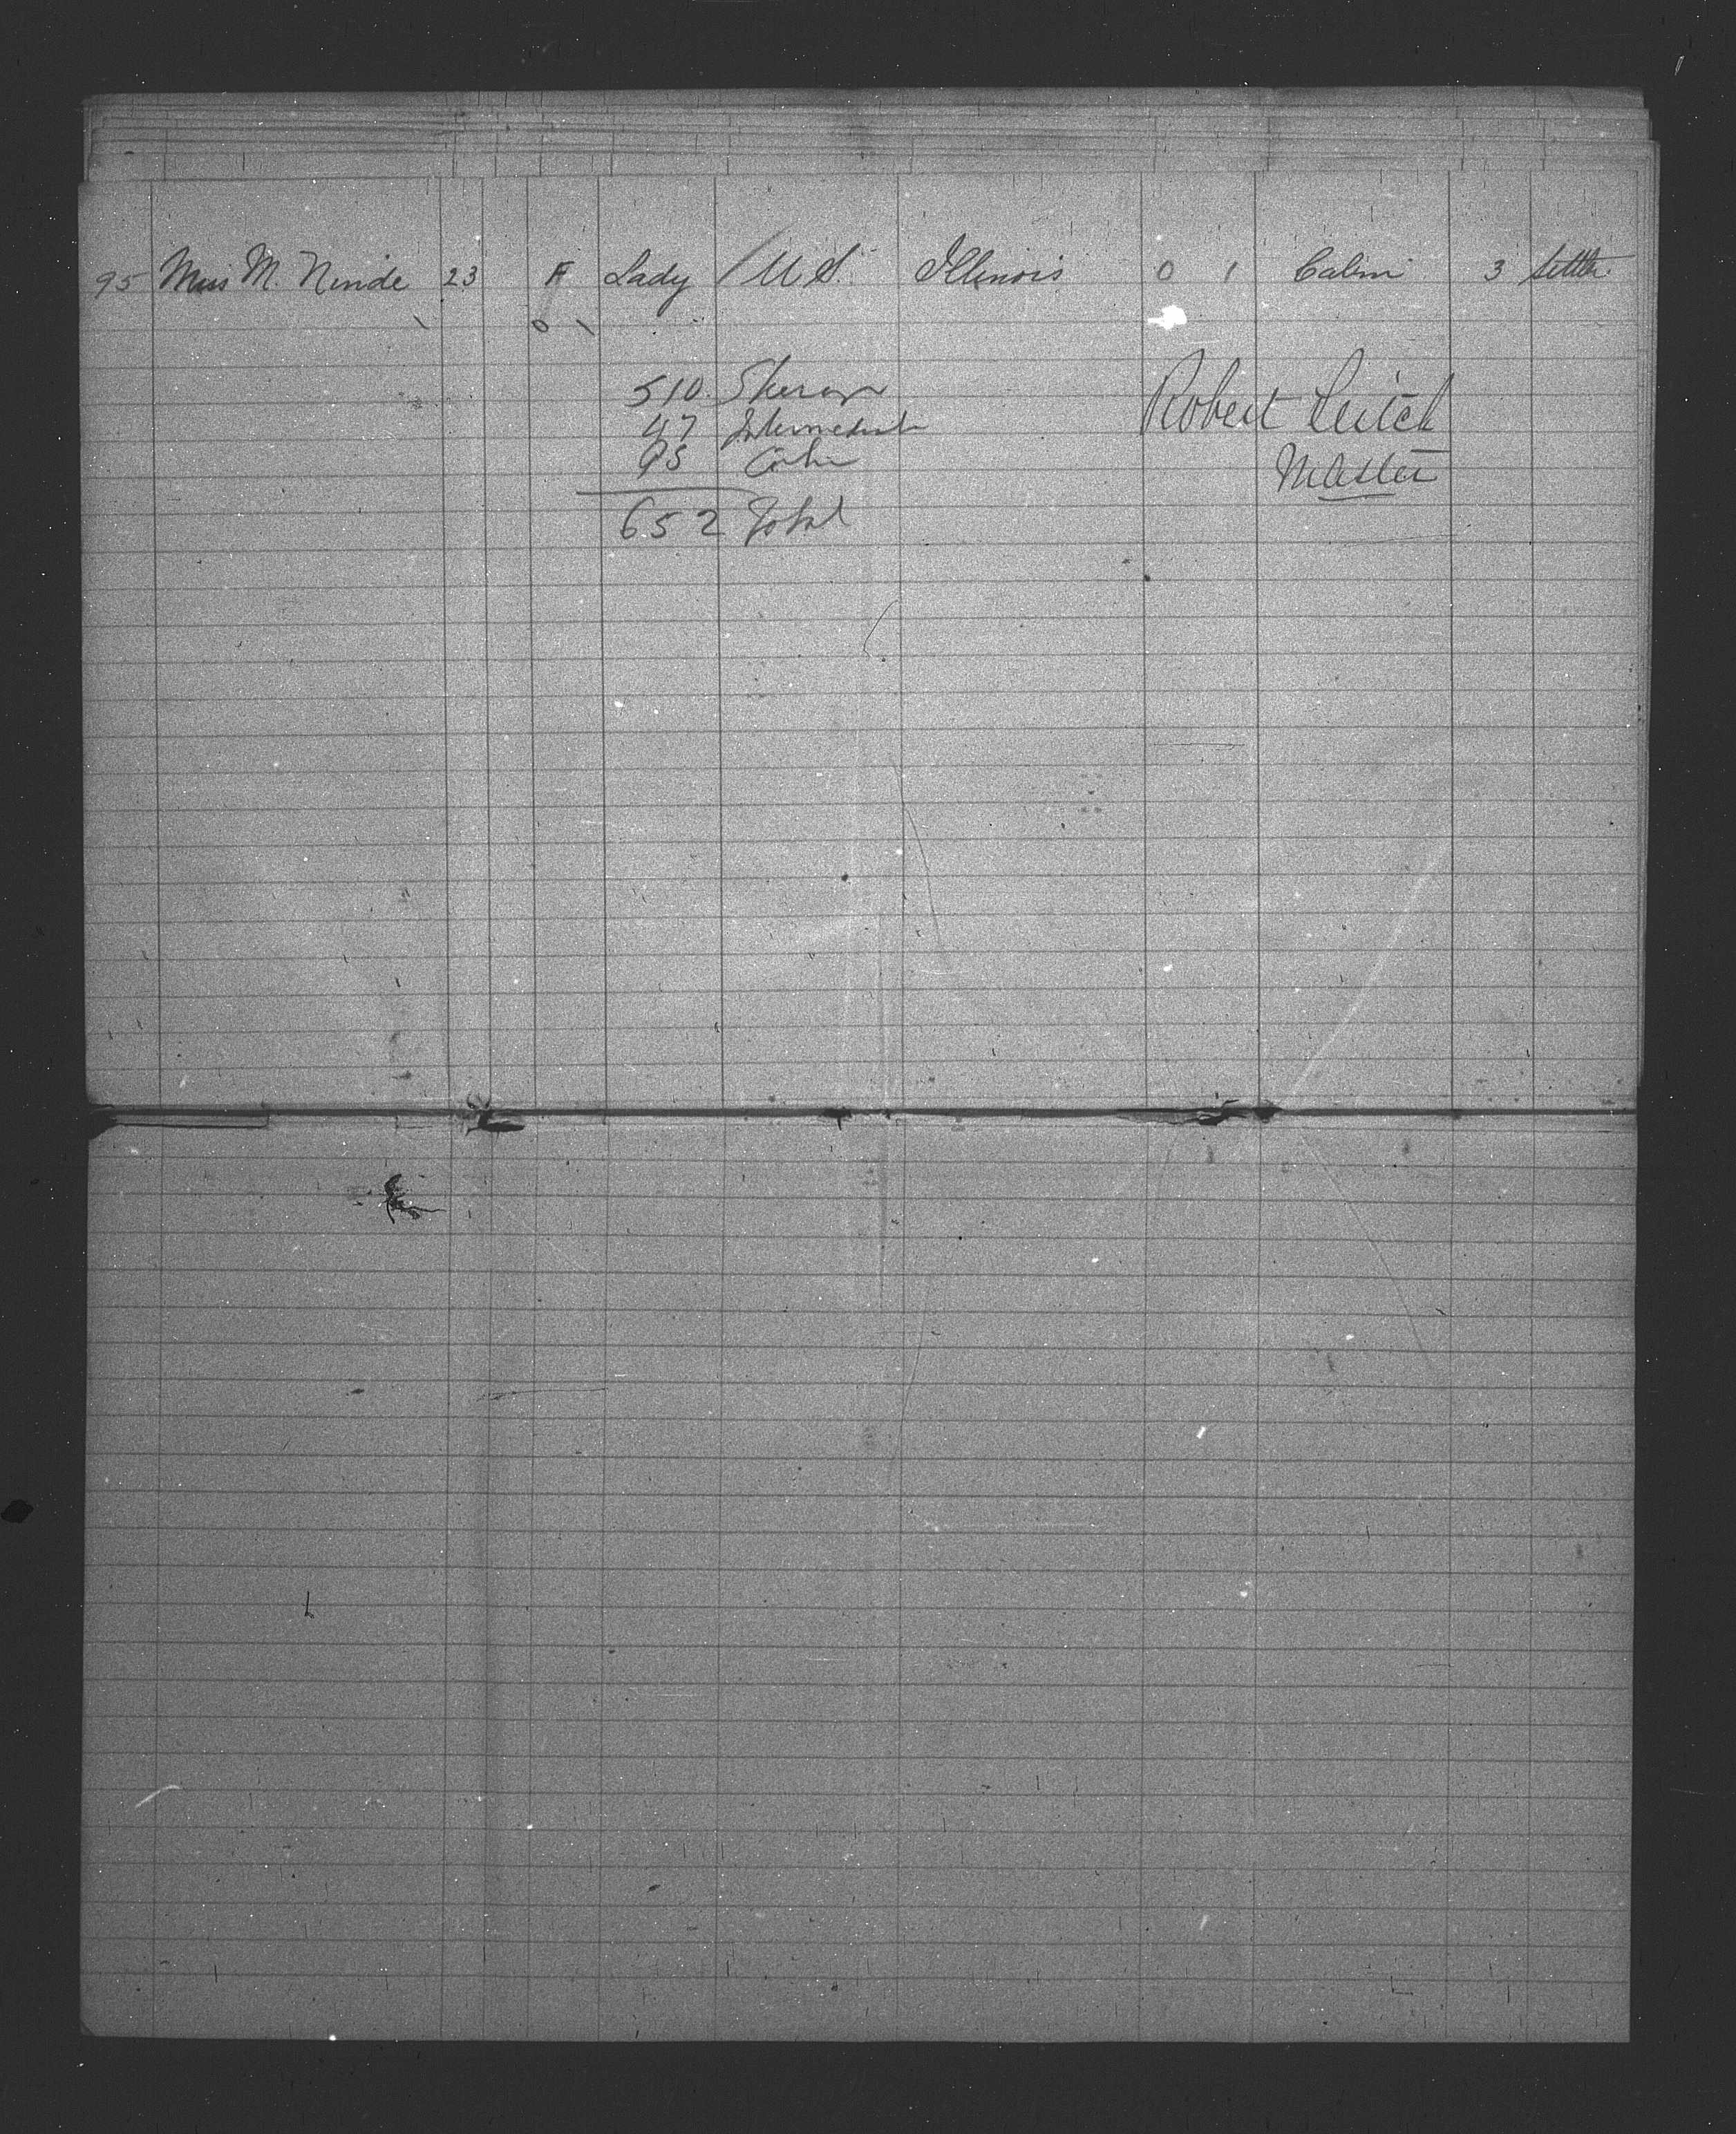 95 Miss M. Ninde 23 F Lady U.S. Illinois 0 1 Cabin 3 Settler
510 Steerage
47 Intermediate
95 Cabin
652 Total
Robert Leitch
Master